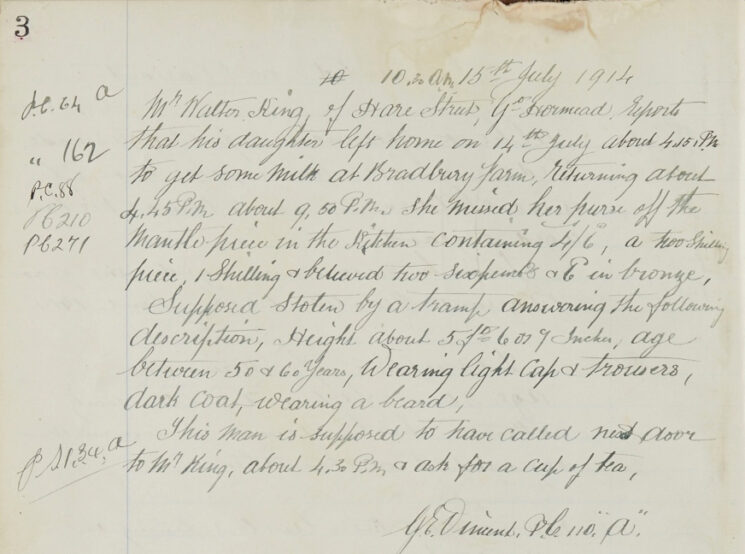 3
10 10.30 am 15th July 1914
P.C. 64 a
Mr Walter King, of Hare Street, Gt Hormead, reports
that his daughter left home on 14th July about 4.15. P.M
" 162
to get some milk at Bradbury farm, returning about
P.C. 88
4.45 P.M. about 9,50 P.M. she missed her purse off the
PC 210
Mantle piece in the Kitchen containing 4/6, a two Shilling
PC 271
piece, 1 Shilling & believed two sixpences & 6 in bronze,
Supposed stolen by a tramp answering the following
description, Height about 5 ft 6 or 7 Inches, age
between 50 & 60 Years, Wearing light Cap & trousers,
dark Coat, wearing a beard,
This man is supposed to have called next door
P.S 1.34. a
to Mr King, about 4.30 P.M. & ask for a cup of tea,
P.C. 110. "A".